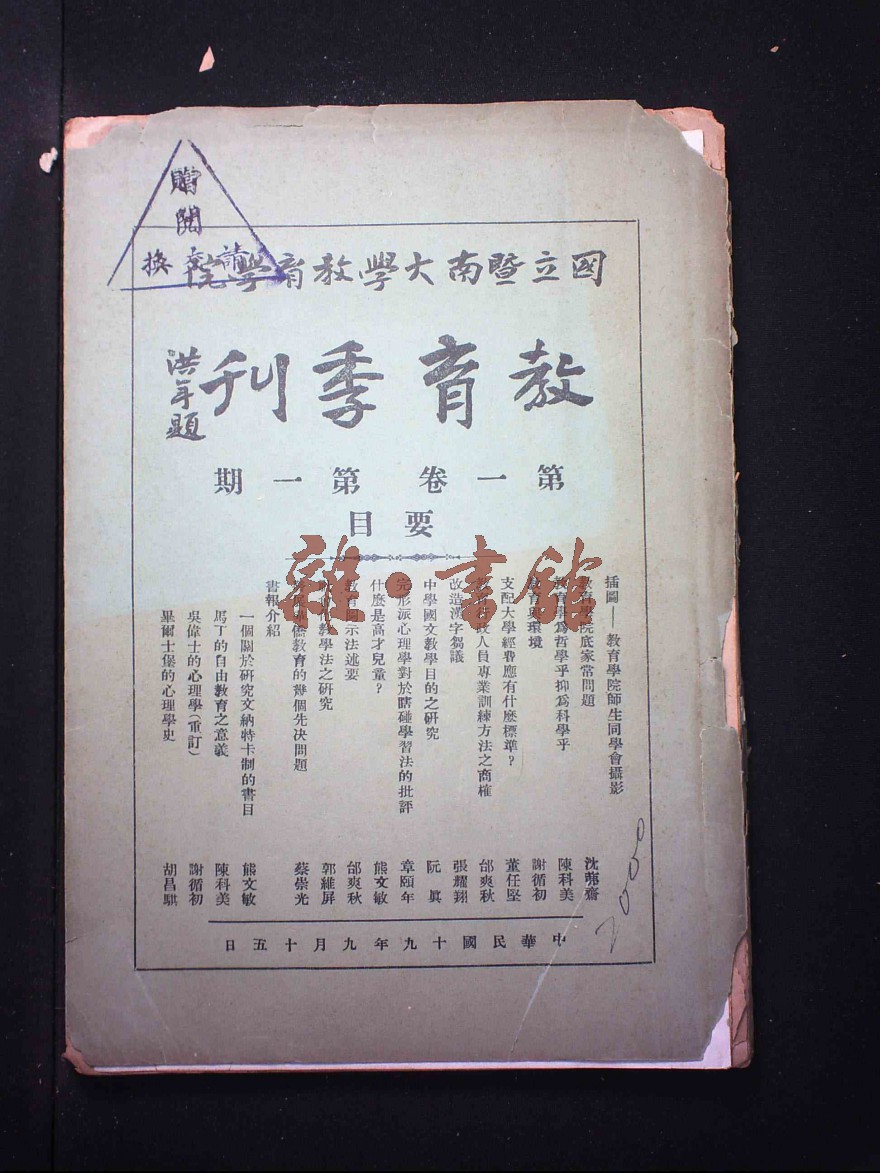 贈閱
請交換
國立暨南大學教育學院
教育季刊
洪年題
第一卷 第一期
要目
雜·書館
插圖——教育學院師生同學會攝影
教育學院底家常問題 沈苑齋
教育科為哲學乎抑為科學乎 陳科美
教育與環境 謝循初
支配大學經費應有什麼標準？ 董任堅
行政人員專業訓練方法之商榷 邰爽秋
改造漢字芻議 張耀翔
中學國文教學目的之研究 阮眞
完形派心理學對於瞎碰學習法的批評 章頤年
什麼是高才兒童？ 熊文敏
教育圖示法述要 邰爽秋
教學法之研究 郭維屏
華僑教育的幾個先決問題 蔡崇光
書報介紹
一個關於研究文納特卡制的書目 熊文敏
馬丁的自由教育之意義 陳科美
吳偉士的心理學（重訂） 謝循初
畢爾士堡的心理學史 胡昌騏
中華民國十九年九月十五日